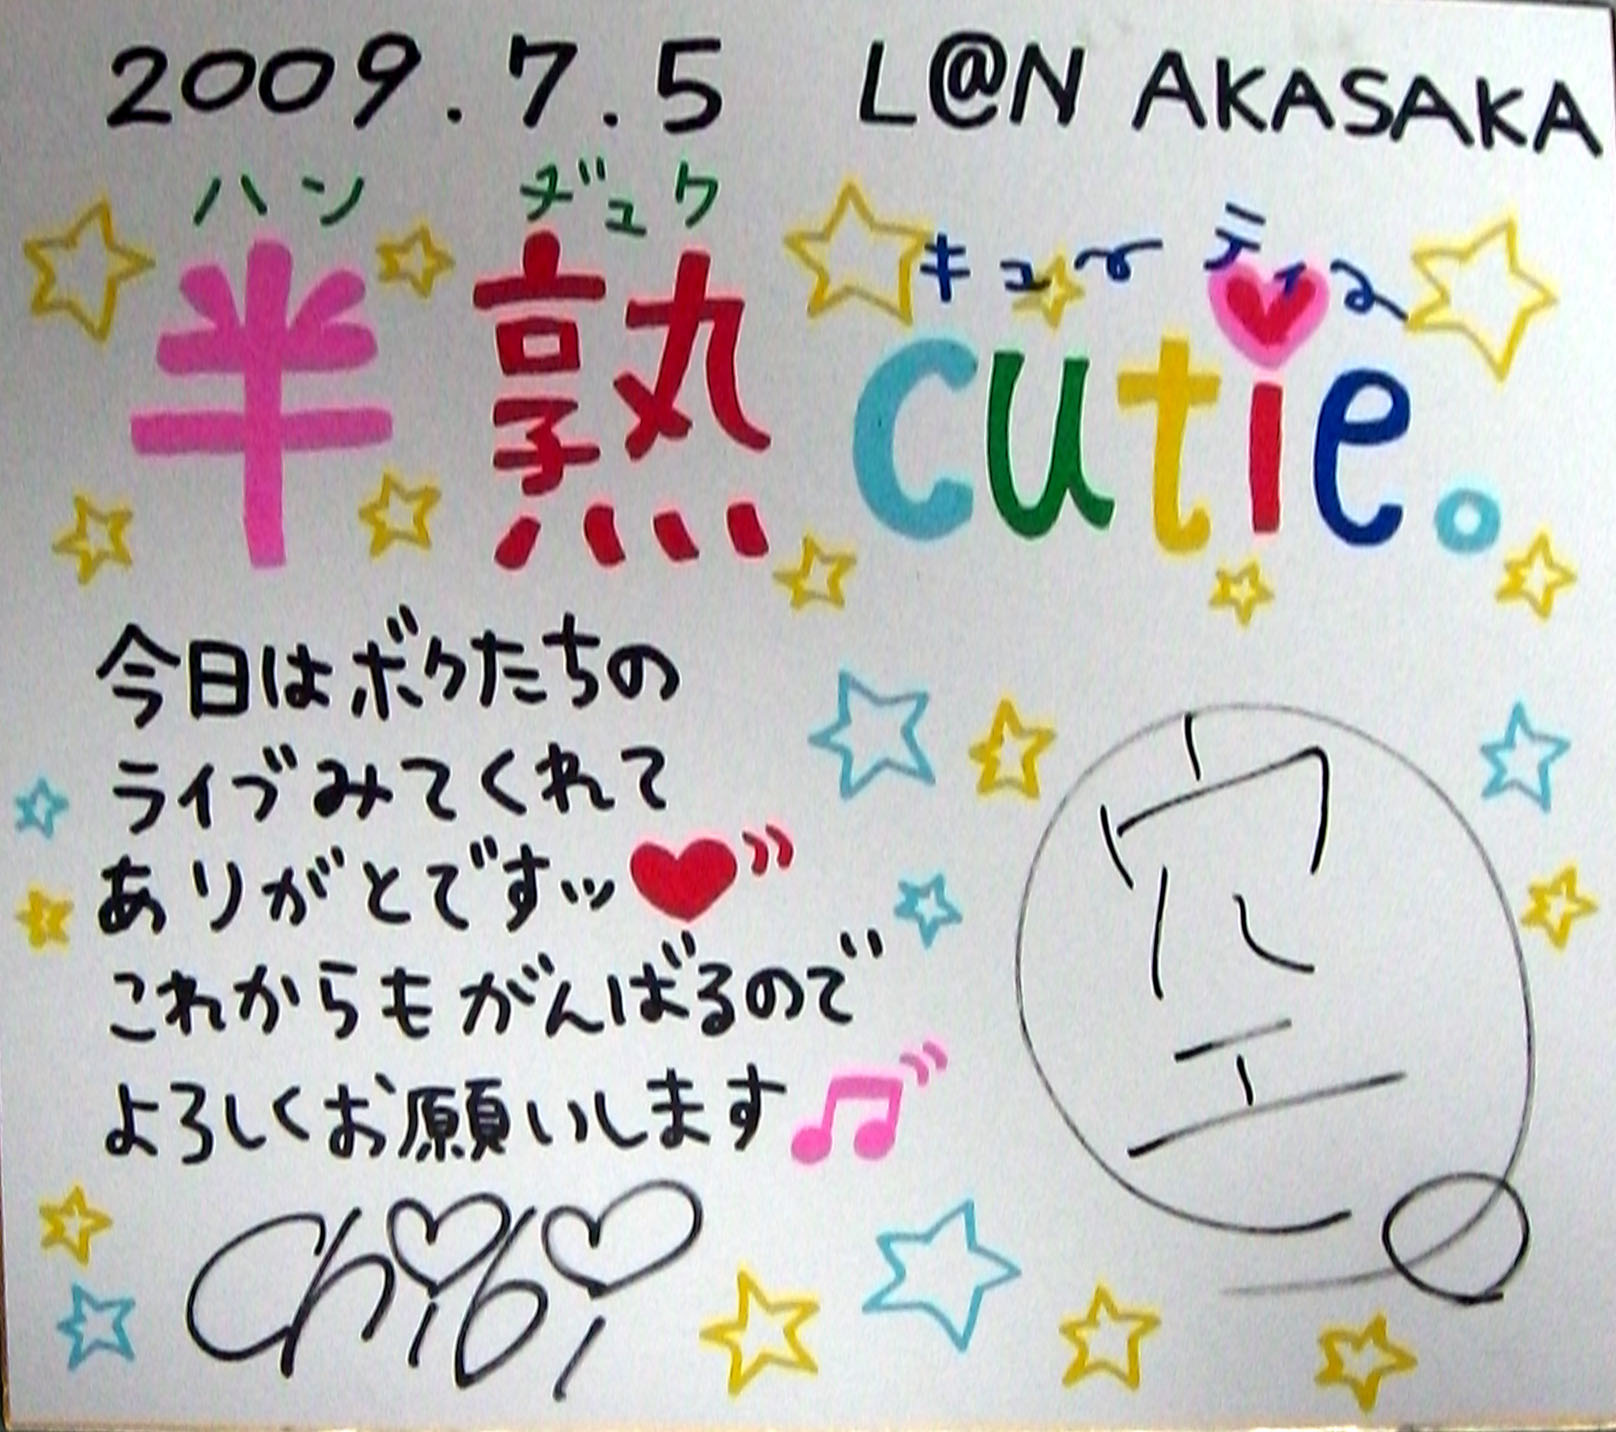 2009.7.5 L@N AKASAKA
ハンヂュク キューティー
半熟cutie。
今日はボクたちの
ライブみてくれて
ありがとですッ♥
これからもがんばるので
よろしくお願いします♫
chibi
空